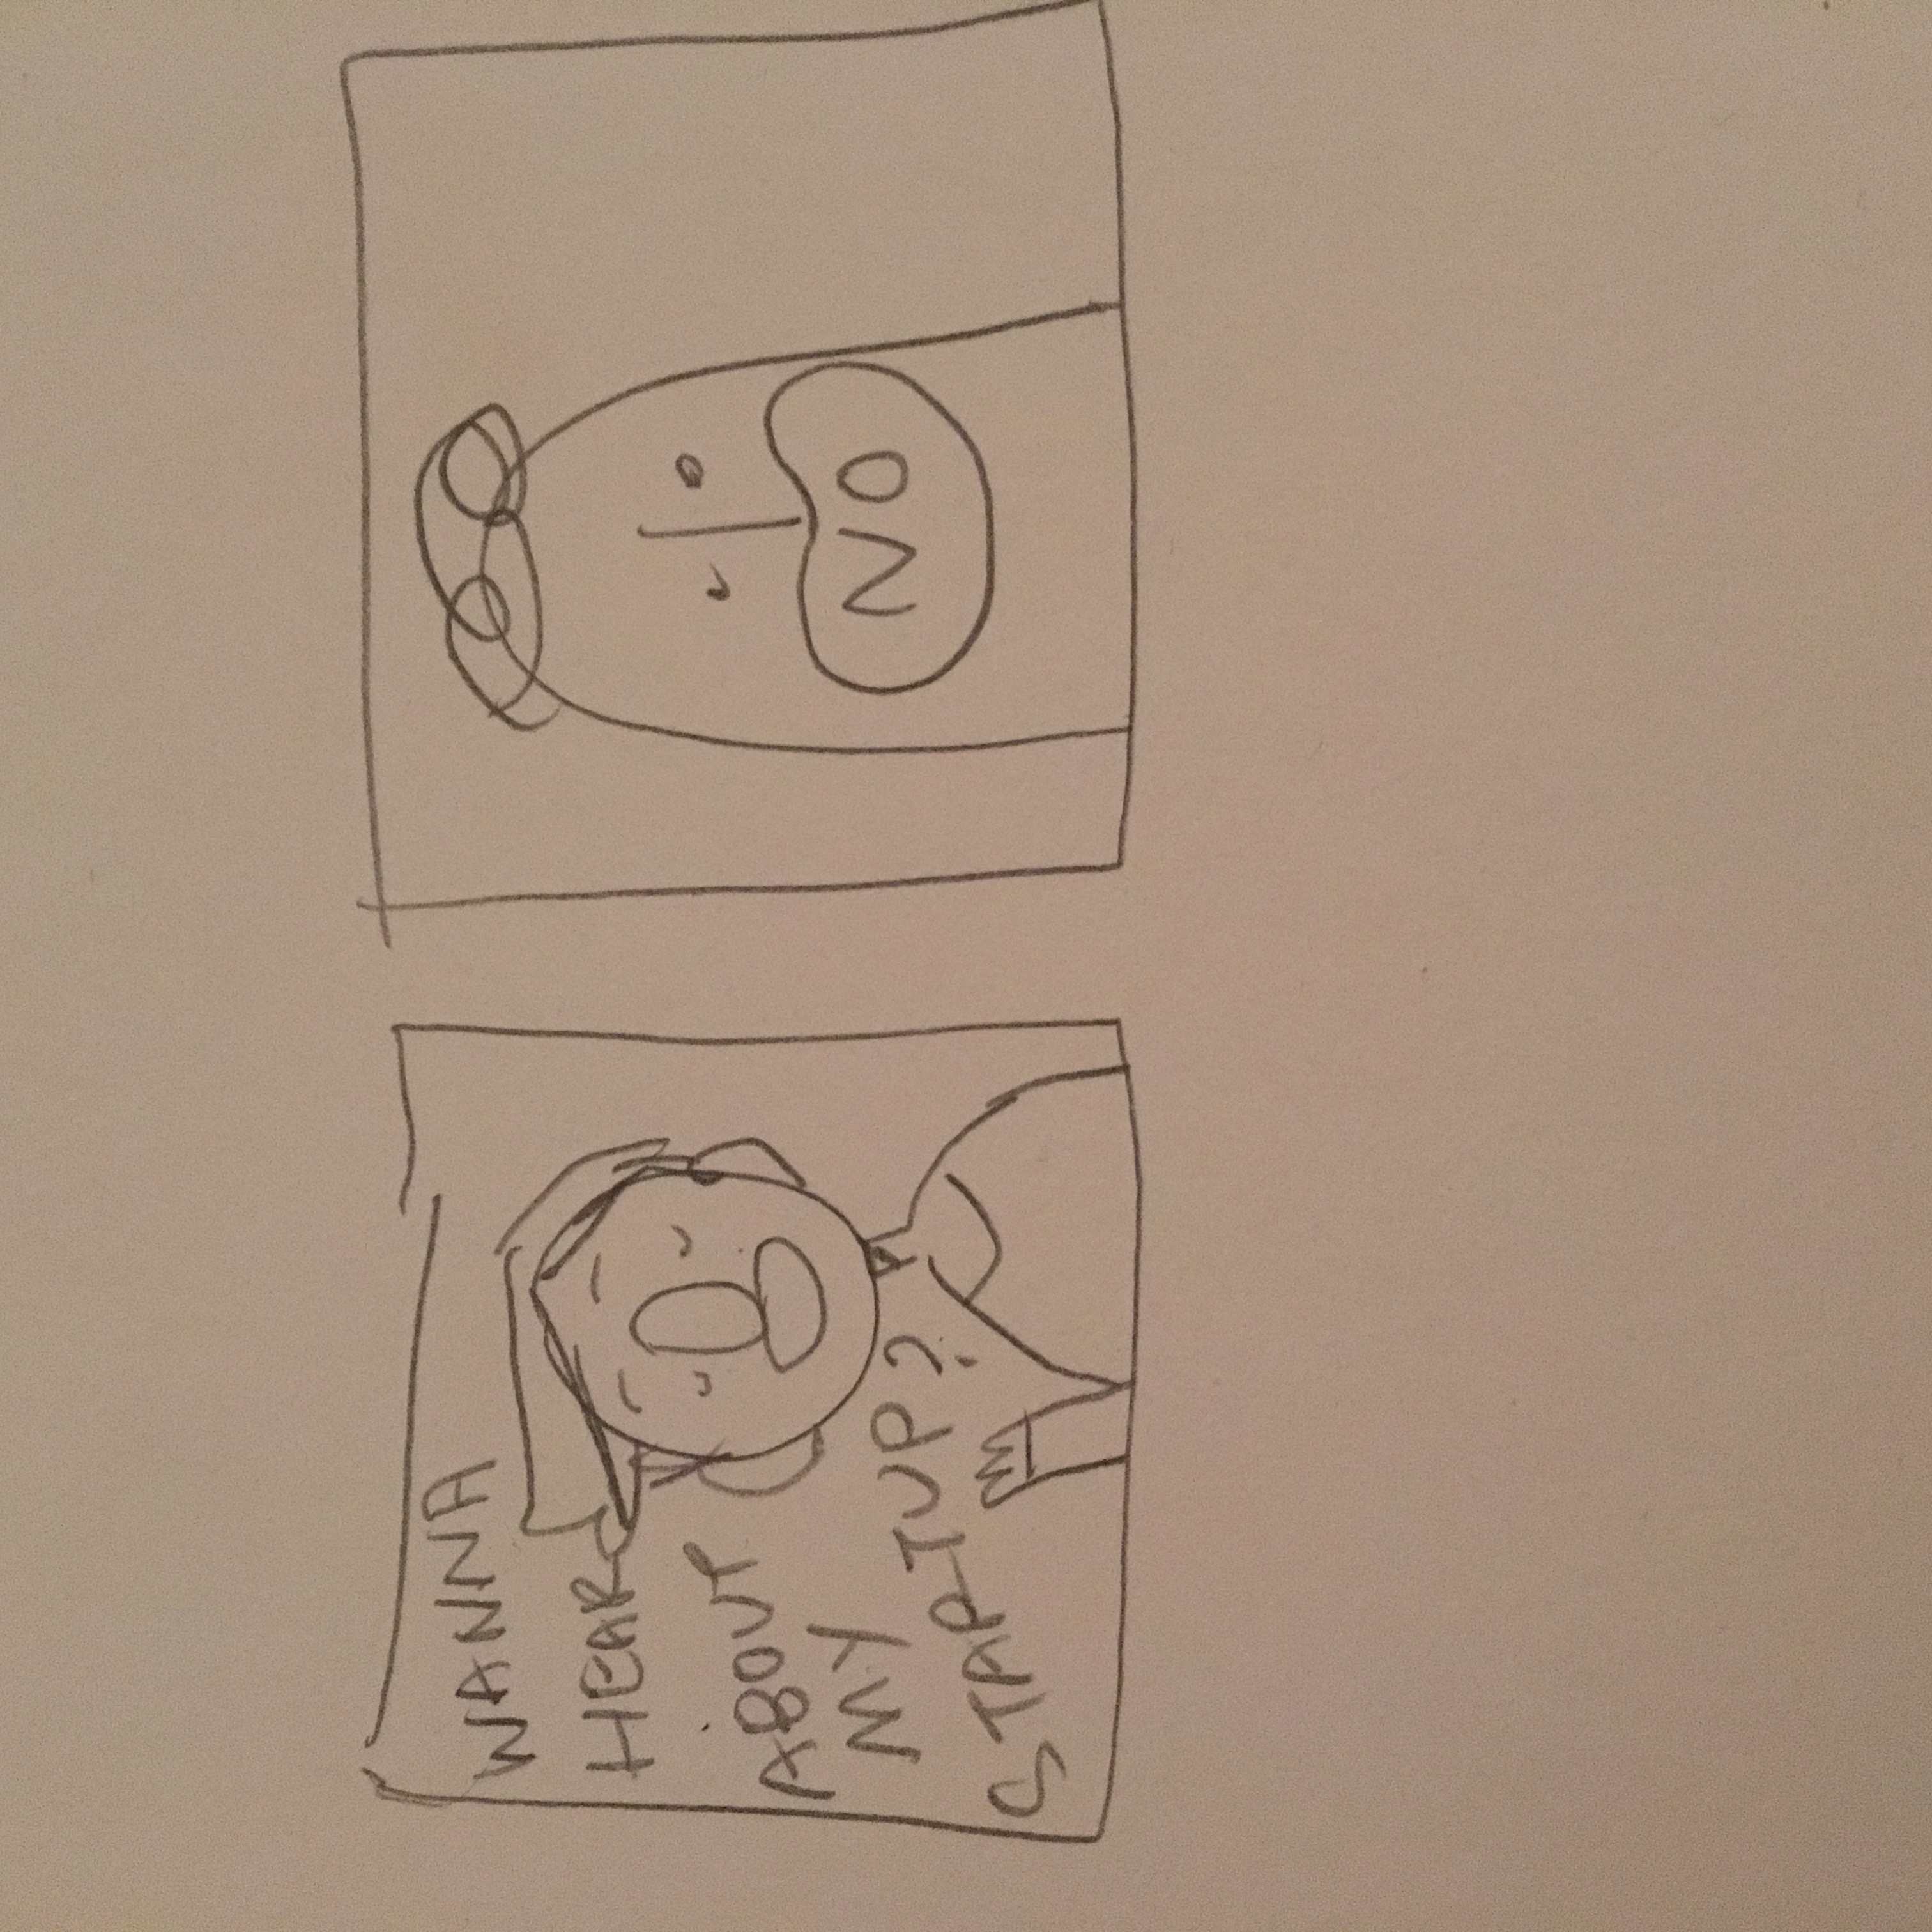 WANNA
HEAR
ABOUT
MY
STARTUP?
NO